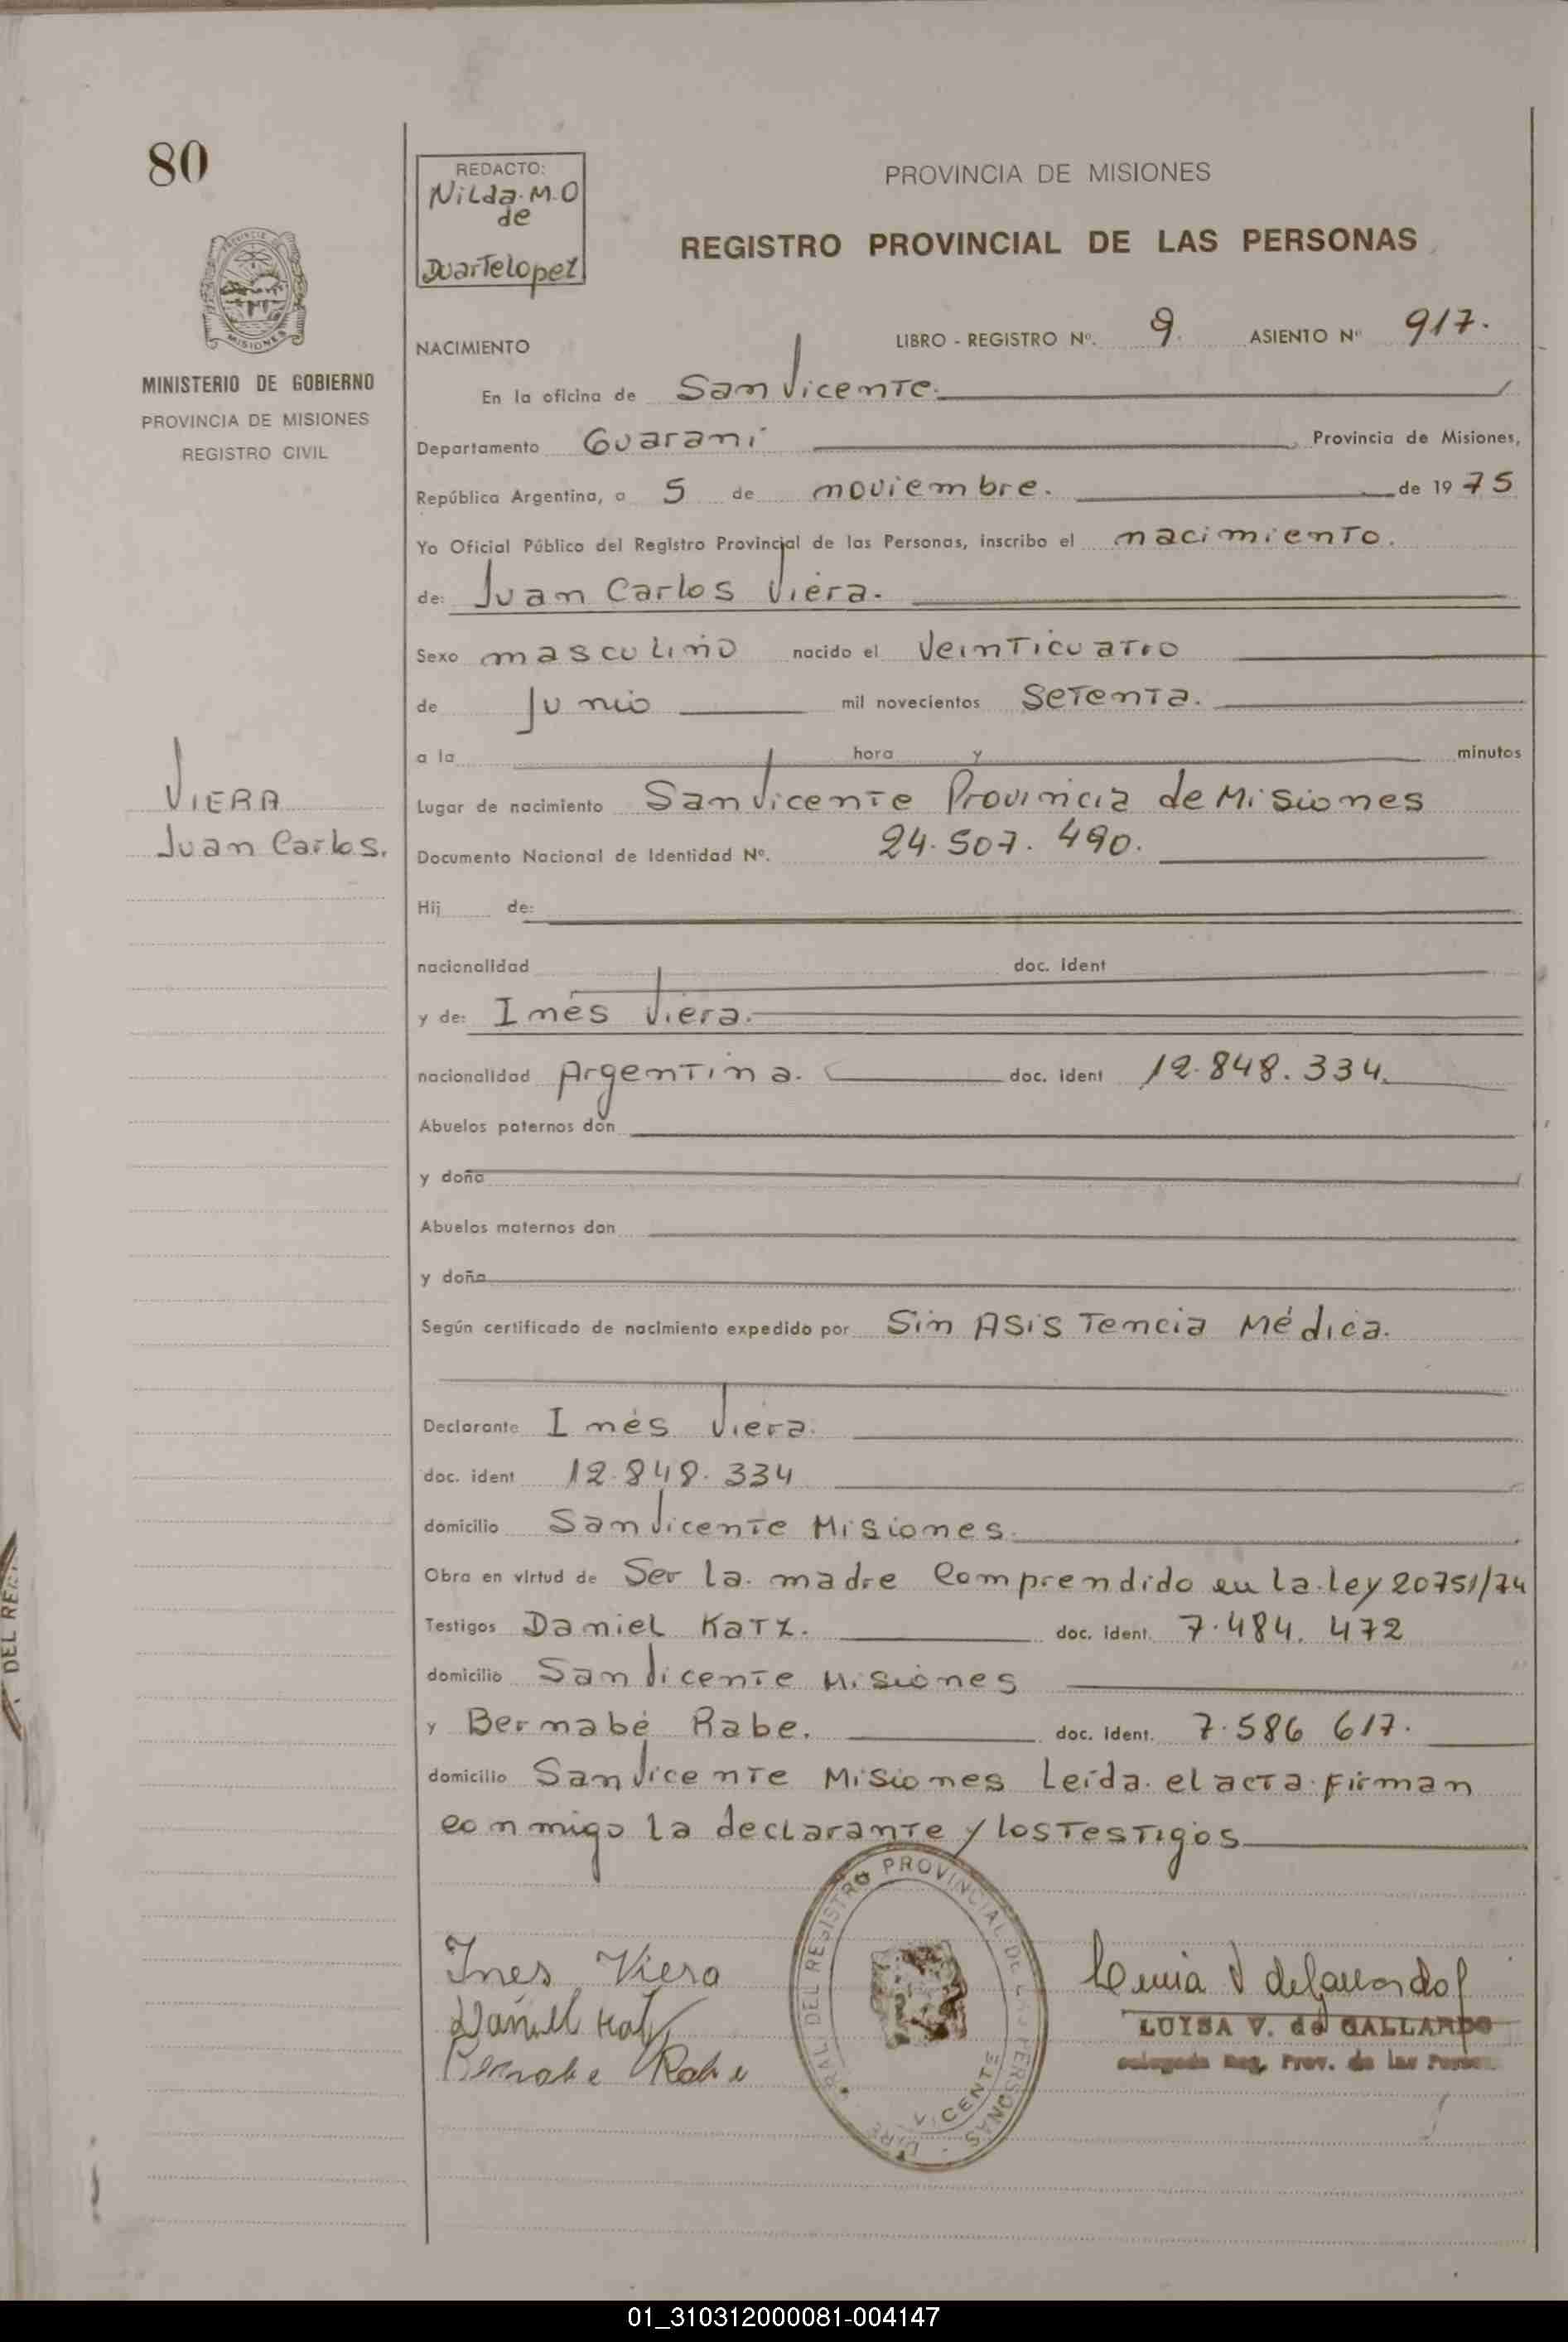 80
REDACTO:
Nilda. M. O
de
Duartelopez
PROVINCIA DE MISIONES
REGISTRO PROVINCIAL DE LAS PERSONAS
MISIONES
MINISTERIO DE GOBIERNO
PROVINCIA DE MISIONES
REGISTRO CIVIL
NACIMIENTO LIBRO - REGISTRO Nº. 9. ASIENTO Nº 917.
En la oficina de San Vicente.
Departamento Guarani Provincia de Misiones,
República Argentina, a 5 de noviembre. de 1975
Yo Oficial Público del Registro Provincial de las Personas, inscribo el nacimiento.
de: Juan Carlos Viera.
Sexo masculino nacido el Veinticuatro
de Junio mil novecientos Setenta.
a la hora y minutos
VIERA
Juan Carlos.
Lugar de nacimiento San Vicente Provincia de Misiones
Documento Nacional de Identidad Nº. 24.507.490.
Hij de:
nacionalidad doc. ident
y de: Inés Viera.
nacionalidad Argentina. doc. ident 12.848.334.
Abuelos paternos don
y doña
Abuelos maternos don
y doña
Según certificado de nacimiento expedido por Sin Asistencia Médica.
Declarante Inés Viera.
doc. ident 12.848.334
domicilio San Vicente Misiones.
Obra en virtud de Ser la madre Comprendido en la ley 20751/74
Testigos Daniel Katz. doc. ident. 7.484.472
domicilio San Vicente Misiones
y Bernabé Rabe. doc. ident. 7.586 617.
domicilio San Vicente Misiones Leída el acta firman
conmigo la declarante y los testigos
DEL REGISTRO PROVINCIAL DE LAS PERSONAS
VICENTE
Inés Viera
Daniel Katz
Bernabe Rabe
LUISA V. de GALLARDO
Delegada Reg. Prov. de las Personas
DEL REG
01_310312000081-004147